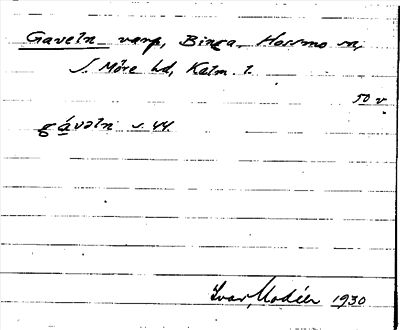 Gaveln varp, Binga Hossmo sn,
S. Möre hd, Kalm. l.
50 v
gávəln s. 44.
Ivar Modéer 1930